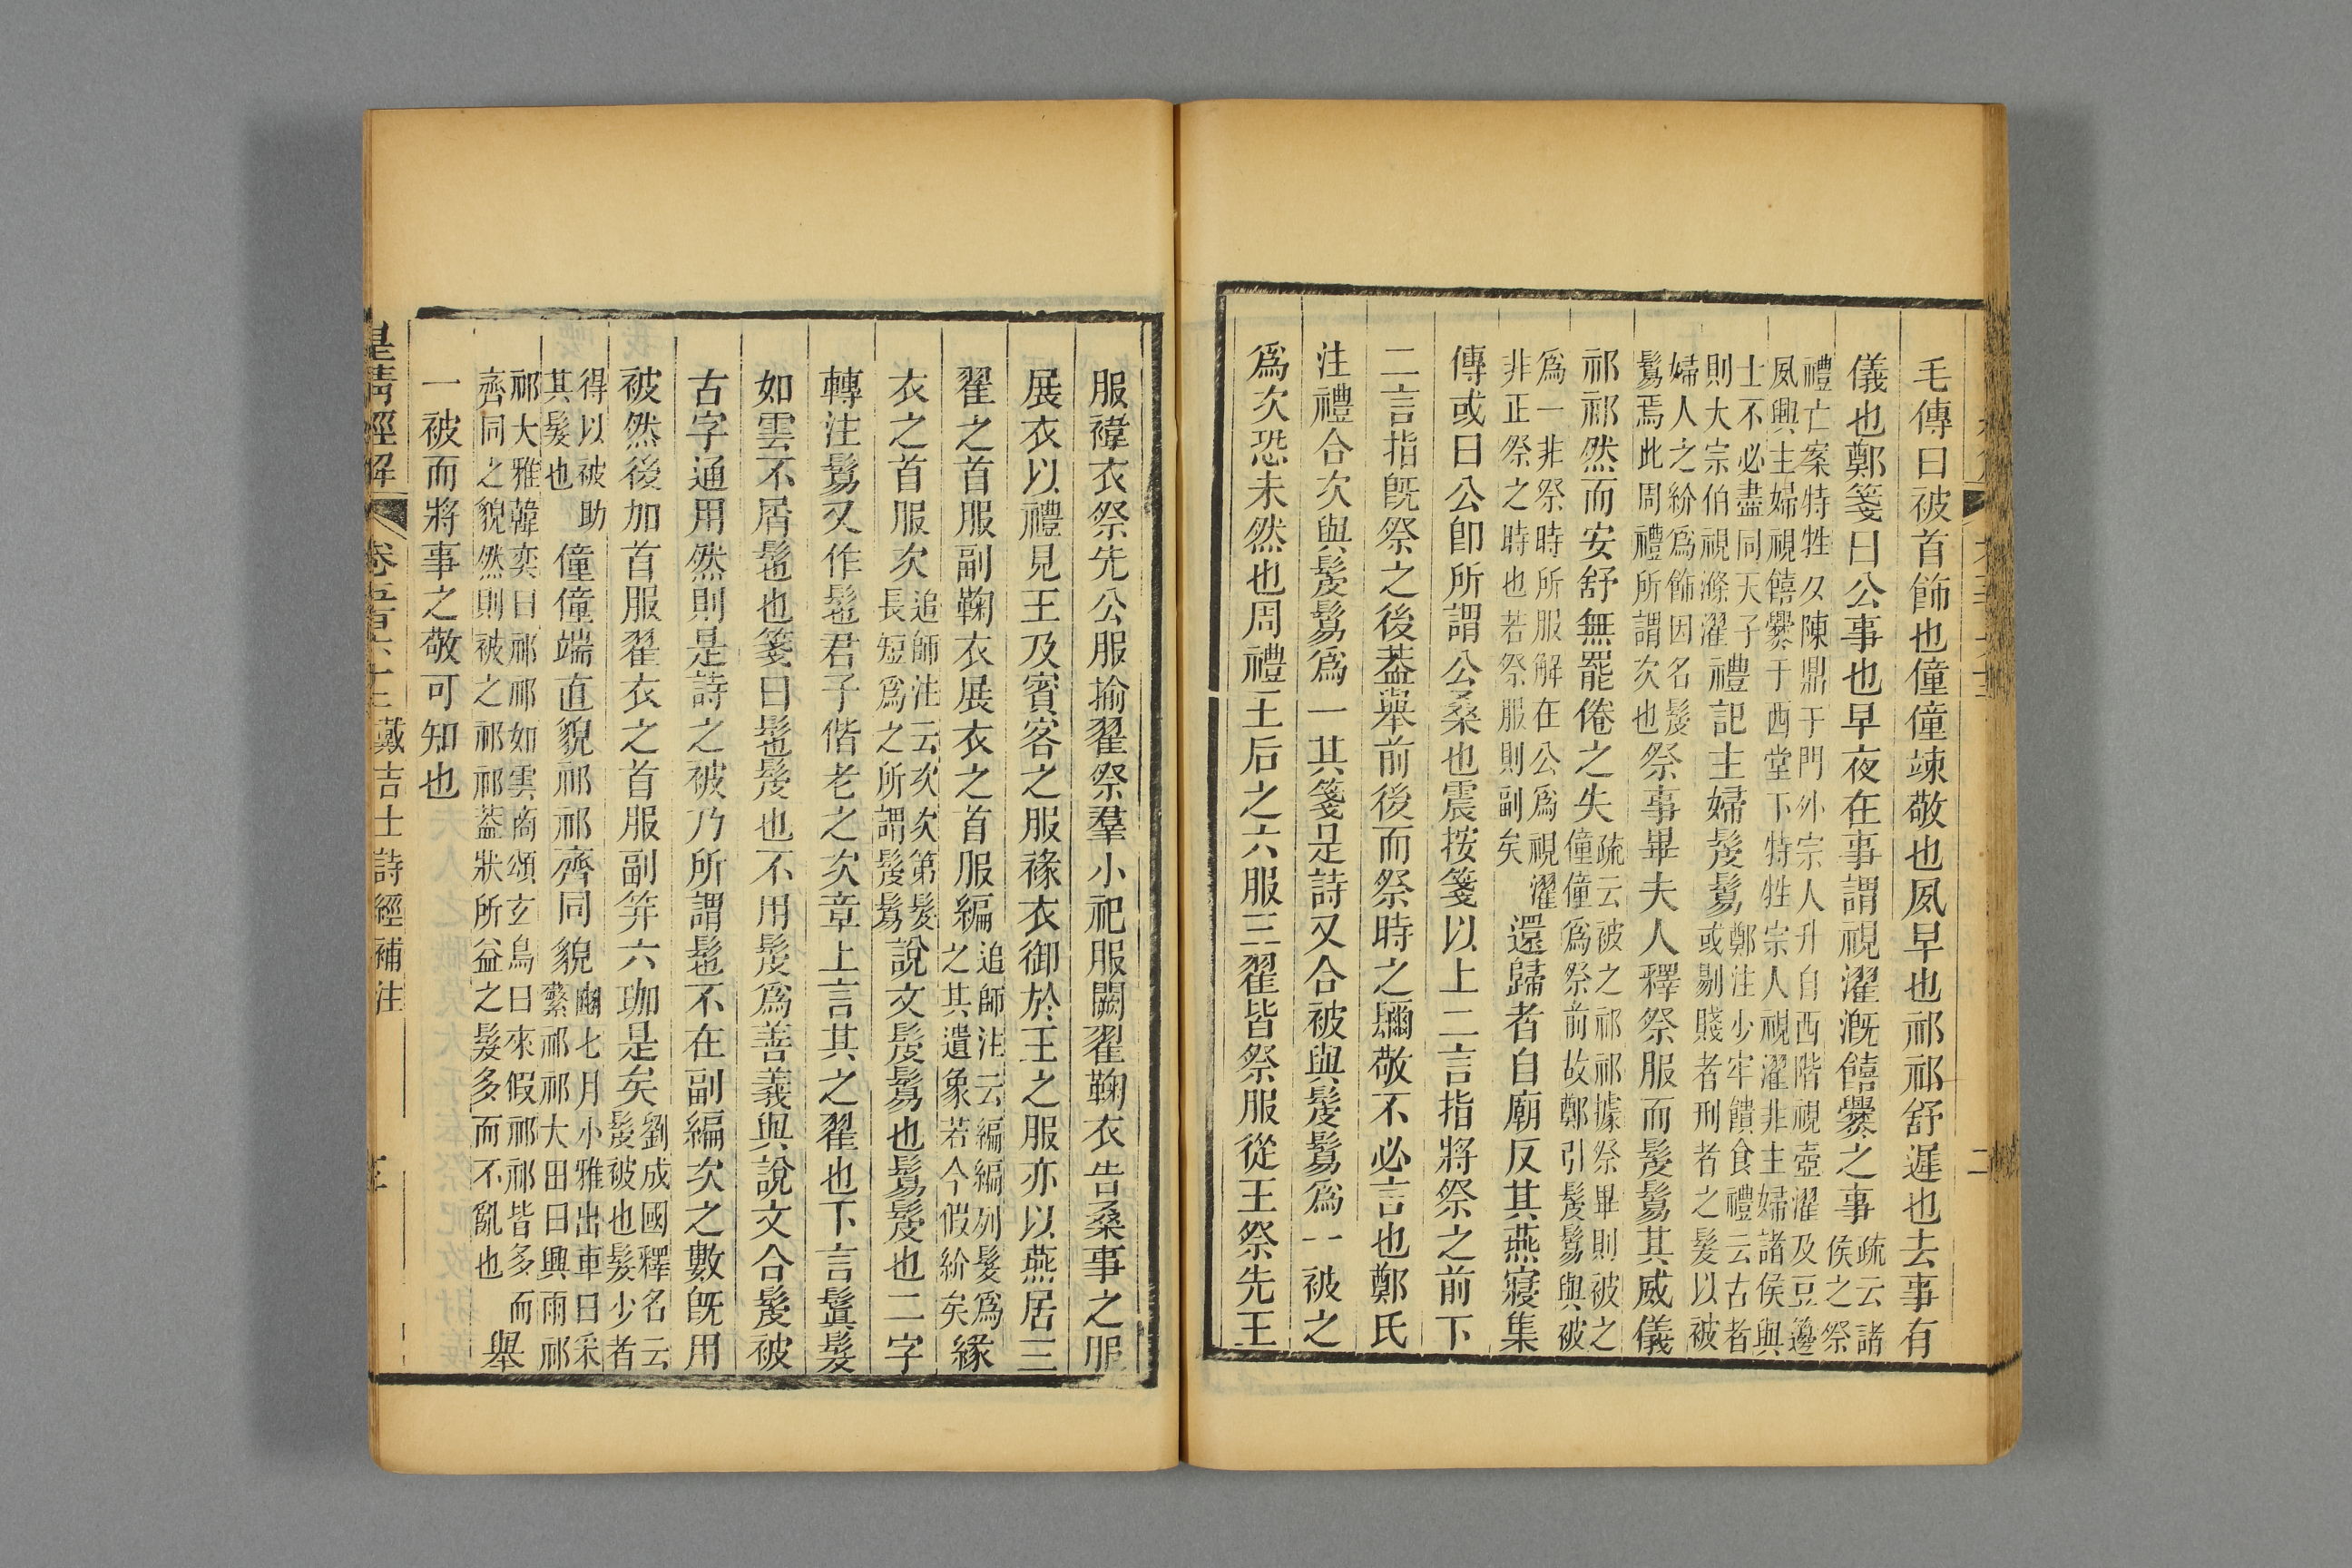 毛傳曰被首飾也僮僮竦敬也夙早也祁祁舒遲也去事有
儀也鄭箋曰公事也早夜在事謂視濯漑饎爨之事疏云諸侯之祭
禮亡案特牲夕陳鼎于門外宗人升自西階視壺濯及豆籩
夙興主婦視饎爨于西堂下特牲宗人視濯非主婦諸侯與
士不必盡同天子
則大宗伯視滌濯禮記主婦髲鬄鄭注少牢饋食禮云古者
或剔賤者刑者之髮以被
婦人之紒爲飾因名髲
鬄焉此周禮所謂次也祭事畢夫人釋祭服而髲鬄其威儀
祁祁然而安舒無罷倦之失疏云被之祁祁據祭畢則被之
僮僮爲祭前故鄭引髲鬄與被
爲一非祭時所服解在公爲視濯
非正祭之時也若祭服則副矣還歸者自廟反其燕寢集
傳或曰公卽所謂公桑也震按箋以上二言指將祭之前下
二言指旣祭之後葢舉前後而祭時之彌敬不必言也鄭氏
注禮合次與髲鬄爲一其箋是詩又合被與髲鬄爲一被之
爲次恐未然也周禮王后之六服三翟皆祭服從王祭先王
服褘衣祭先公服揄翟祭羣小祀服闕翟鞠衣告桑事之服
展衣以禮見王及賓客之服褖衣御於王之服亦以燕居三
翟之首服副鞠衣展衣之首服編追師注云編編列髮爲
之其遺象若今假紒矣緣
衣之首服次追師注云次次第髮
長短爲之所謂髲鬄說文髲鬄也鬄髲也二字
轉注鬄又作髢君子偕老之次章上言其之翟也下言鬒髮
如雲不屑髢也箋曰髢髲也不用髲爲善義與說文合髲被
古字通用然則是詩之被乃所謂髢不在副編次之數旣用
被然後加首服翟衣之首服副筓六珈是矣劉成國釋名云
髲被也髮少者
得以被助
其髮也僮僮端直貌祁祁齊同貌豳七月小雅出車曰采
蘩祁祁大田曰興雨祁
祁大雅韓奕曰祁祁如雲商頌玄鳥曰來假祁祁皆多而
齊同之貌然則被之祁祁葢狀所益之髮多而不亂也舉
一被而將事之敬可知也
皇淸經解 卷五百六十三 戴吉士詩經補注 三